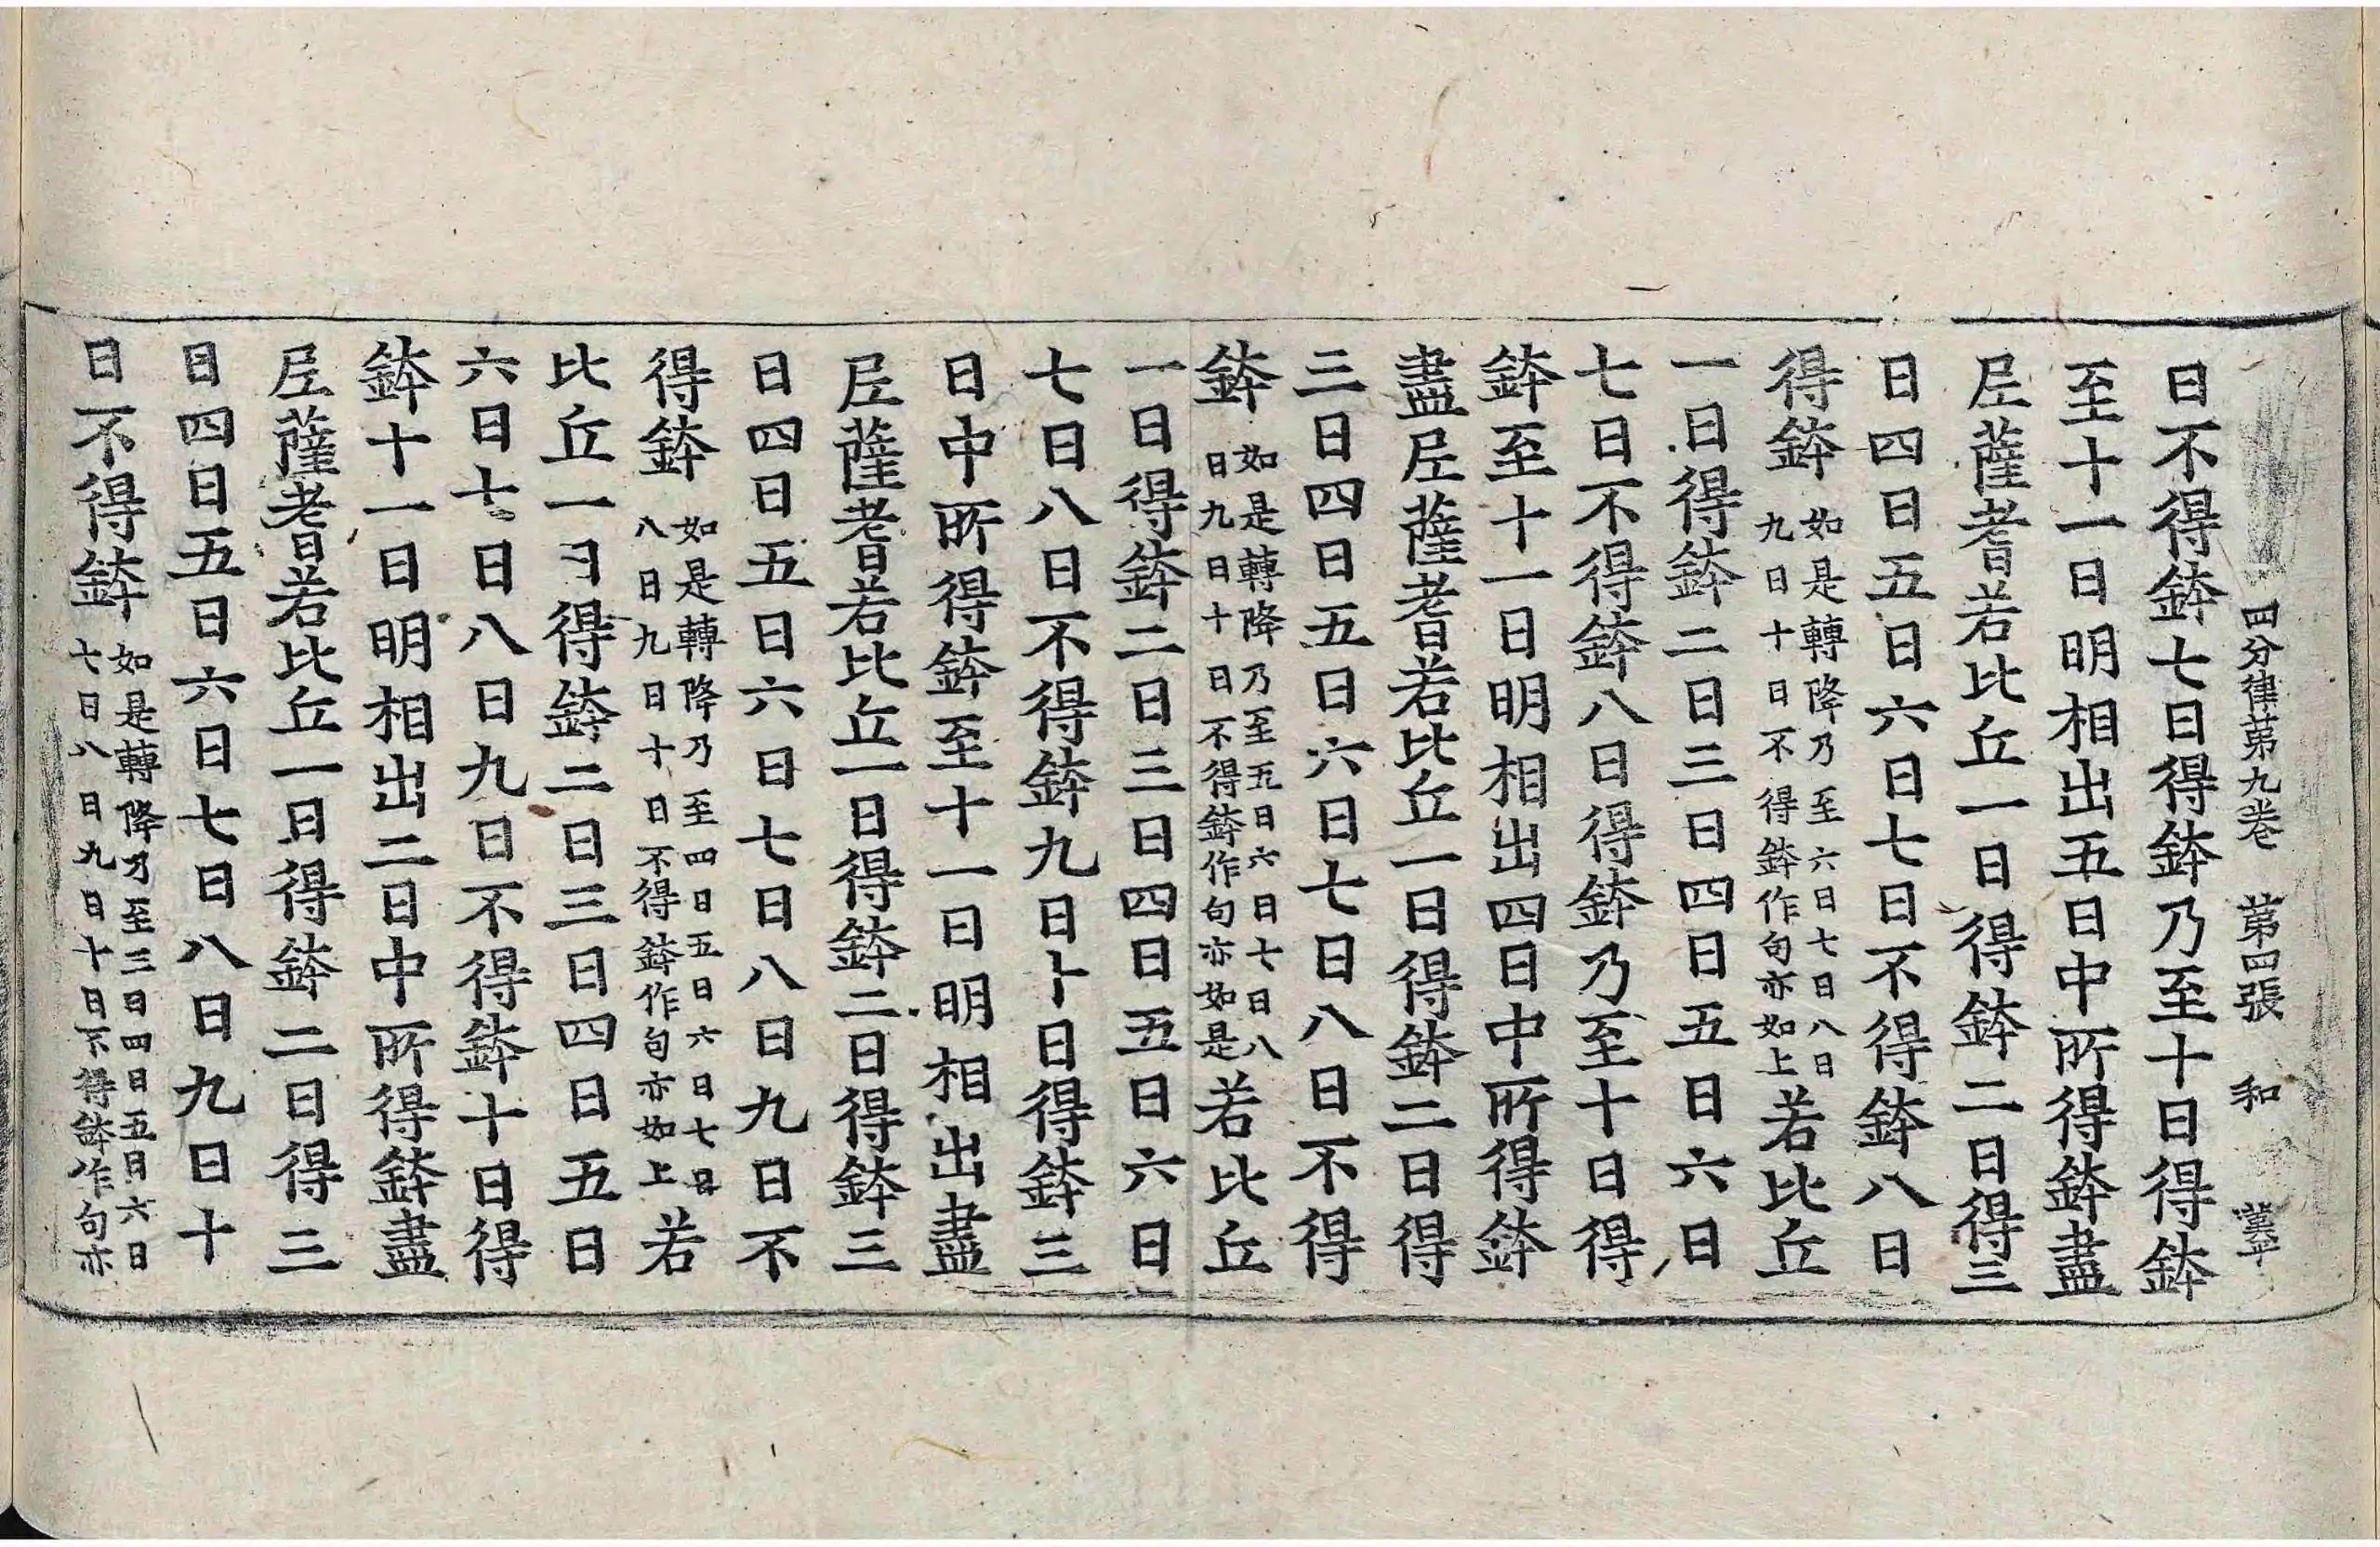 四分律第九卷　第四張　和
日不得鉢七日得鉢乃至十日得鉢
至十一日明相出五日中所得鉢盡
尼薩耆若比丘一日得鉢二日得三
日四日五日六日七日不得鉢八日
得鉢如是轉降乃至六日七日八日九日十日不得鉢作句亦如上若比丘
一日得鉢二日三日四日五日六日
七日不得鉢八日得鉢乃至十日得
鉢至十一日明相出四日中所得鉢
盡尼薩耆若比丘一日得鉢二日得
三日四日五日六日七日八日不得
鉢如是轉降乃至五日六日七日八日九日十日不得鉢作句亦如是若比丘
一日得鉢二日三日四日五日六日
七日八日不得鉢九日十日得鉢三
日中所得鉢至十一日明相出盡
尼薩耆若比丘一日得鉢二日得鉢三
日四日五日六日七日八日九日不
得鉢如是轉降乃至四日五日六日七日八日九日十日不得鉢作句亦如上若
比丘一日得鉢二日三日四日五日
六日七日八日九日不得鉢十日得
鉢十一日明相出二日中所得鉢盡
尼薩耆若比丘一日得鉢二日得三
日四日五日六日七日八日九日十
日不得鉢如是轉降乃至三日四日五日六日七日八日九日十日不得鉢作句亦